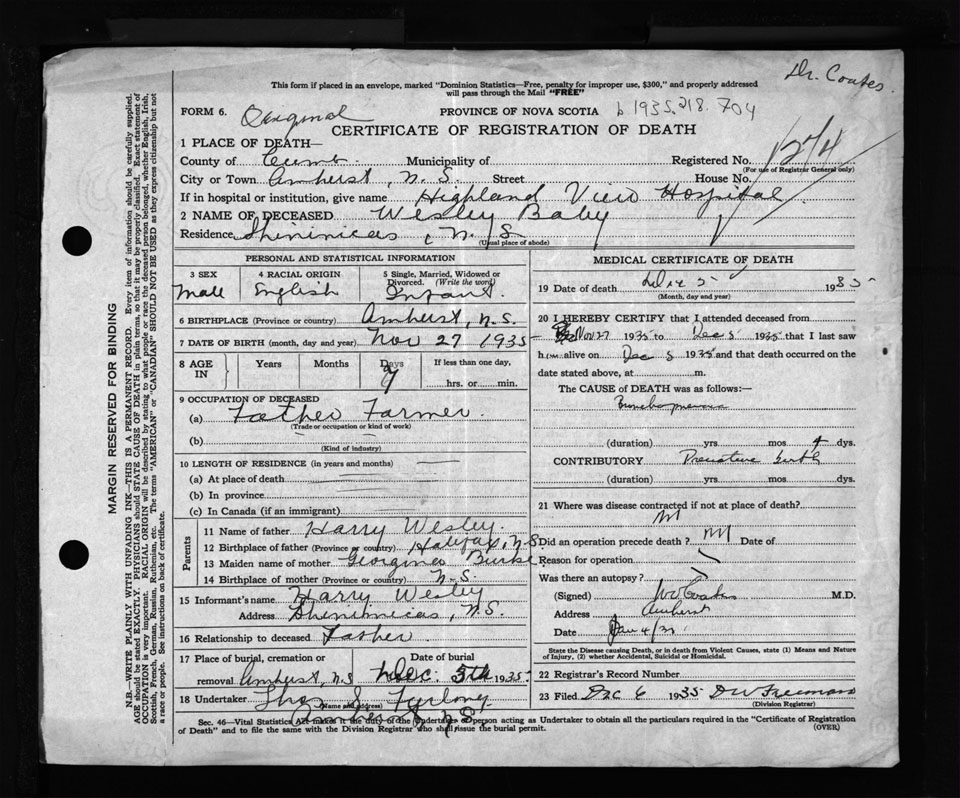 Dr. Coates.
This form if placed in an envelope, marked "Dominion Statistics—Free, penalty for improper use, $300," and properly addressed
will pass through the Mail "FREE"
FORM 6. Original PROVINCE OF NOVA SCOTIA b 1935.218.704
CERTIFICATE OF REGISTRATION OF DEATH
1 PLACE OF DEATH—
County of Cumb. Municipality of Registered No. 1274
(For use of Registrar General only)
City or Town Amherst, N.S. Street House No.
If in hospital or institution, give name Highland View Hospital
2 NAME OF DECEASED Wesley Baby
Residence Shinimicas, N.S.
(Usual place of abode)
PERSONAL AND STATISTICAL INFORMATION
3 SEX 4 RACIAL ORIGIN 5 Single, Married, Widowed or Divorced. (Write the word)
Male English Infant.
6 BIRTHPLACE (Province or country) Amherst, N.S.
7 DATE OF BIRTH (month, day and year) Nov 27 1935
8 AGE IN Years Months Days If less than one day,
hrs. or min.
9 OCCUPATION OF DECEASED
(a) Father Farmer.
(Trade or occupation or kind of work)
(b)
(Kind of industry)
10 LENGTH OF RESIDENCE (in years and months)
(a) At place of death
(b) In province
(c) In Canada (if an immigrant)
Parents
11 Name of father Harry Wesley.
12 Birthplace of father (Province or country) Halifax, N.S.
13 Maiden name of mother Georgina Burke
14 Birthplace of mother (Province or country) N.S.
15 Informant's name Harry Wesley
Address Shinimicas, N.S.
16 Relationship to deceased Father
17 Place of burial, cremation or removal Amherst, N.S Date of burial Dec. 5th 1935
18 Undertaker Thos J. Furlong
(Name and address)
MEDICAL CERTIFICATE OF DEATH
19 Date of death Dec 5 1935
(Month, day and year)
20 I HEREBY CERTIFY that I attended deceased from
Nov 27 1935 to Dec 5 1935 that I last saw
him alive on Dec 5 1935 and that death occurred on the
date stated above, at m.
The CAUSE of DEATH was as follows:—
Bronchopneumonia
(duration) yrs mos 4 dys.
CONTRIBUTORY Premature birth
(duration) yrs mos dys.
21 Where was disease contracted if not at place of death?
Did an operation precede death? Date of
Reason for operation
Was there an autopsy?
(Signed) Coates M.D.
Address Amherst
Date
State the Disease causing Death, or in death from Violent Causes, state (1) Means and Nature
of Injury, (2) whether Accidental, Suicidal or Homicidal.
22 Registrar's Record Number
23 Filed Dec 6 1935 DW Freeman
(Division Registrar)
Sec. 46—Vital Statistics Act makes it the duty of the Undertaker or person acting as Undertaker to obtain all the particulars required in the "Certificate of Registration
of Death" and to file the same with the Division Registrar who shall issue the burial permit. (OVER)
MARGIN RESERVED FOR BINDING
N.B.—WRITE PLAINLY WITH UNFADING INK—THIS IS A PERMANENT RECORD. Every item of information should be carefully supplied.
AGE should be stated EXACTLY. PHYSICIANS should STATE CAUSE OF DEATH in plain terms, so that it may be properly classified. Exact statement of
OCCUPATION is very important. RACIAL ORIGIN will be described by stating to what people or race the deceased person belonged, whether English, Irish,
Scottish, French, German, Russian, Ruthenian, etc. The terms "AMERICAN" or "CANADIAN" SHOULD NOT BE USED as they express citizenship but not
a race or people. See instructions on back of certificate.